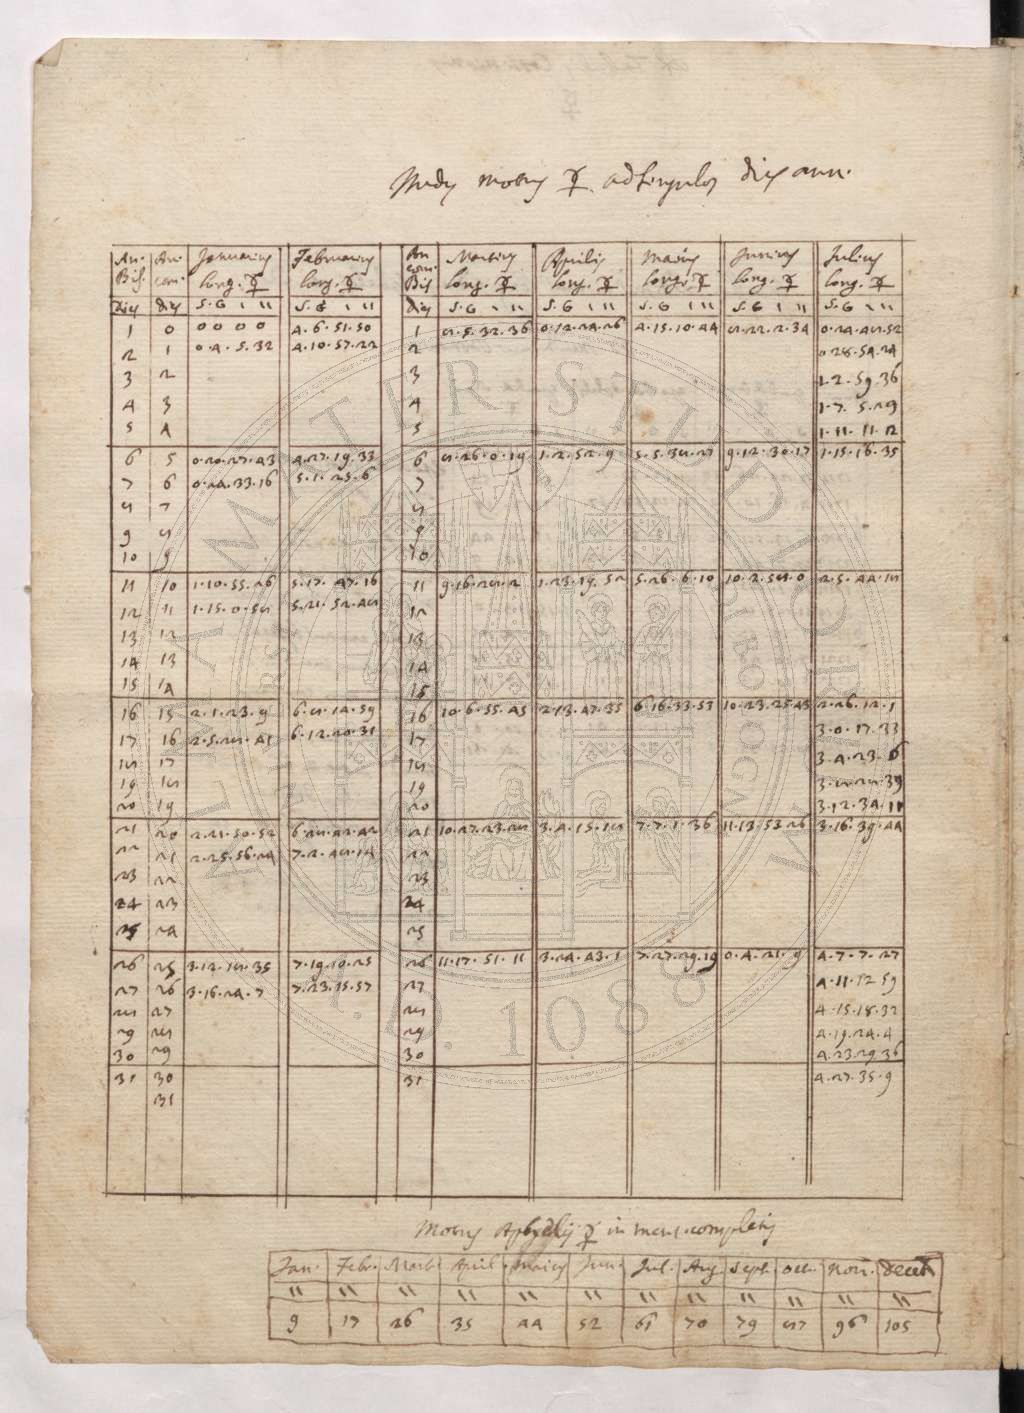 Medij motus ☿ ad singulos dies anni.
An. Bis. An. com. Januarius long. ☿ Februarius long. ☿ An com. Bis Martius long. ☿ Aprilis long. ☿ Maius long. ☿ Junius long. ☿ Julius long. ☿
dies dies S. G ' '' S. G ' '' dies S. G ' '' S. G ' '' S. G ' '' S. G ' '' S. G ' ''
1 0 0 0 0 0 4.6.51.50 1 8.5.32.36 0.12.24.26 4.15.10.44 8.22.2.34 0.24.48.52
2 1 0.4.5.32 4.10.57.22 2 0.28.54.24
3 2 3 1.2.59.36
4 3 4 1.7.5.29
5 4 5 1.11.11.12
6 5 0.20.27.43 4.27.19.33 6 8.26.0.19 1.2.52.9 5.5.38.27 9.12.30.17 1.15.16.35
7 6 0.24.33.16 5.1.25.6 7
8 7 8
9 8 9
10 9 10
11 10 1.10.55.26 5.17.47.16 11 9.16.28.2 1.23.19.52 5.26.6.10 10.2.58.0 2.5.44.18
12 11 1.15.0.58 5.21.52.48 12
13 12 13
14 13 14
15 14 15
16 15 2.1.23.9 6.8.14.59 16 10.6.55.45 2.13.47.35 6.16.33.53 10.23.25.43 2.26.12.1
17 16 2.5.28.41 6.12.20.31 17 3.0.17.33
18 17 18 3.4.23.6
19 18 19 3.8.28.39
20 19 20 3.12.34.11
21 20 2.21.50.52 6.28.42.42 21 10.27.23.28 3.4.15.18 7.7.1.36 11.13.53.26 3.16.39.44
22 21 2.25.56.24 7.2.48.14 22
23 22 23
24 23 24
25 24 25
26 25 3.12.18.35 7.19.10.25 26 11.17.51.11 3.24.43.1 7.27.29.19 0.4.21.9 4.7.7.27
27 26 3.16.24.7 7.23.15.57 27 4.11.12.59
28 27 28 4.15.18.32
29 28 29 4.19.24.4
30 29 30 4.23.29.36
31 30 31 4.27.35.9
31
Motus Apsydis ☿ in mens. completis
Jan. Febr. Mart. April. Maius Jun. Jul. Aug Sept. Oct. Nou. Decēb
'' '' '' '' '' '' '' '' '' '' '' ''
9 17 26 35 44 52 61 70 79 87 96 105
ALMA MATER STUDIORUM
A.D. 1088